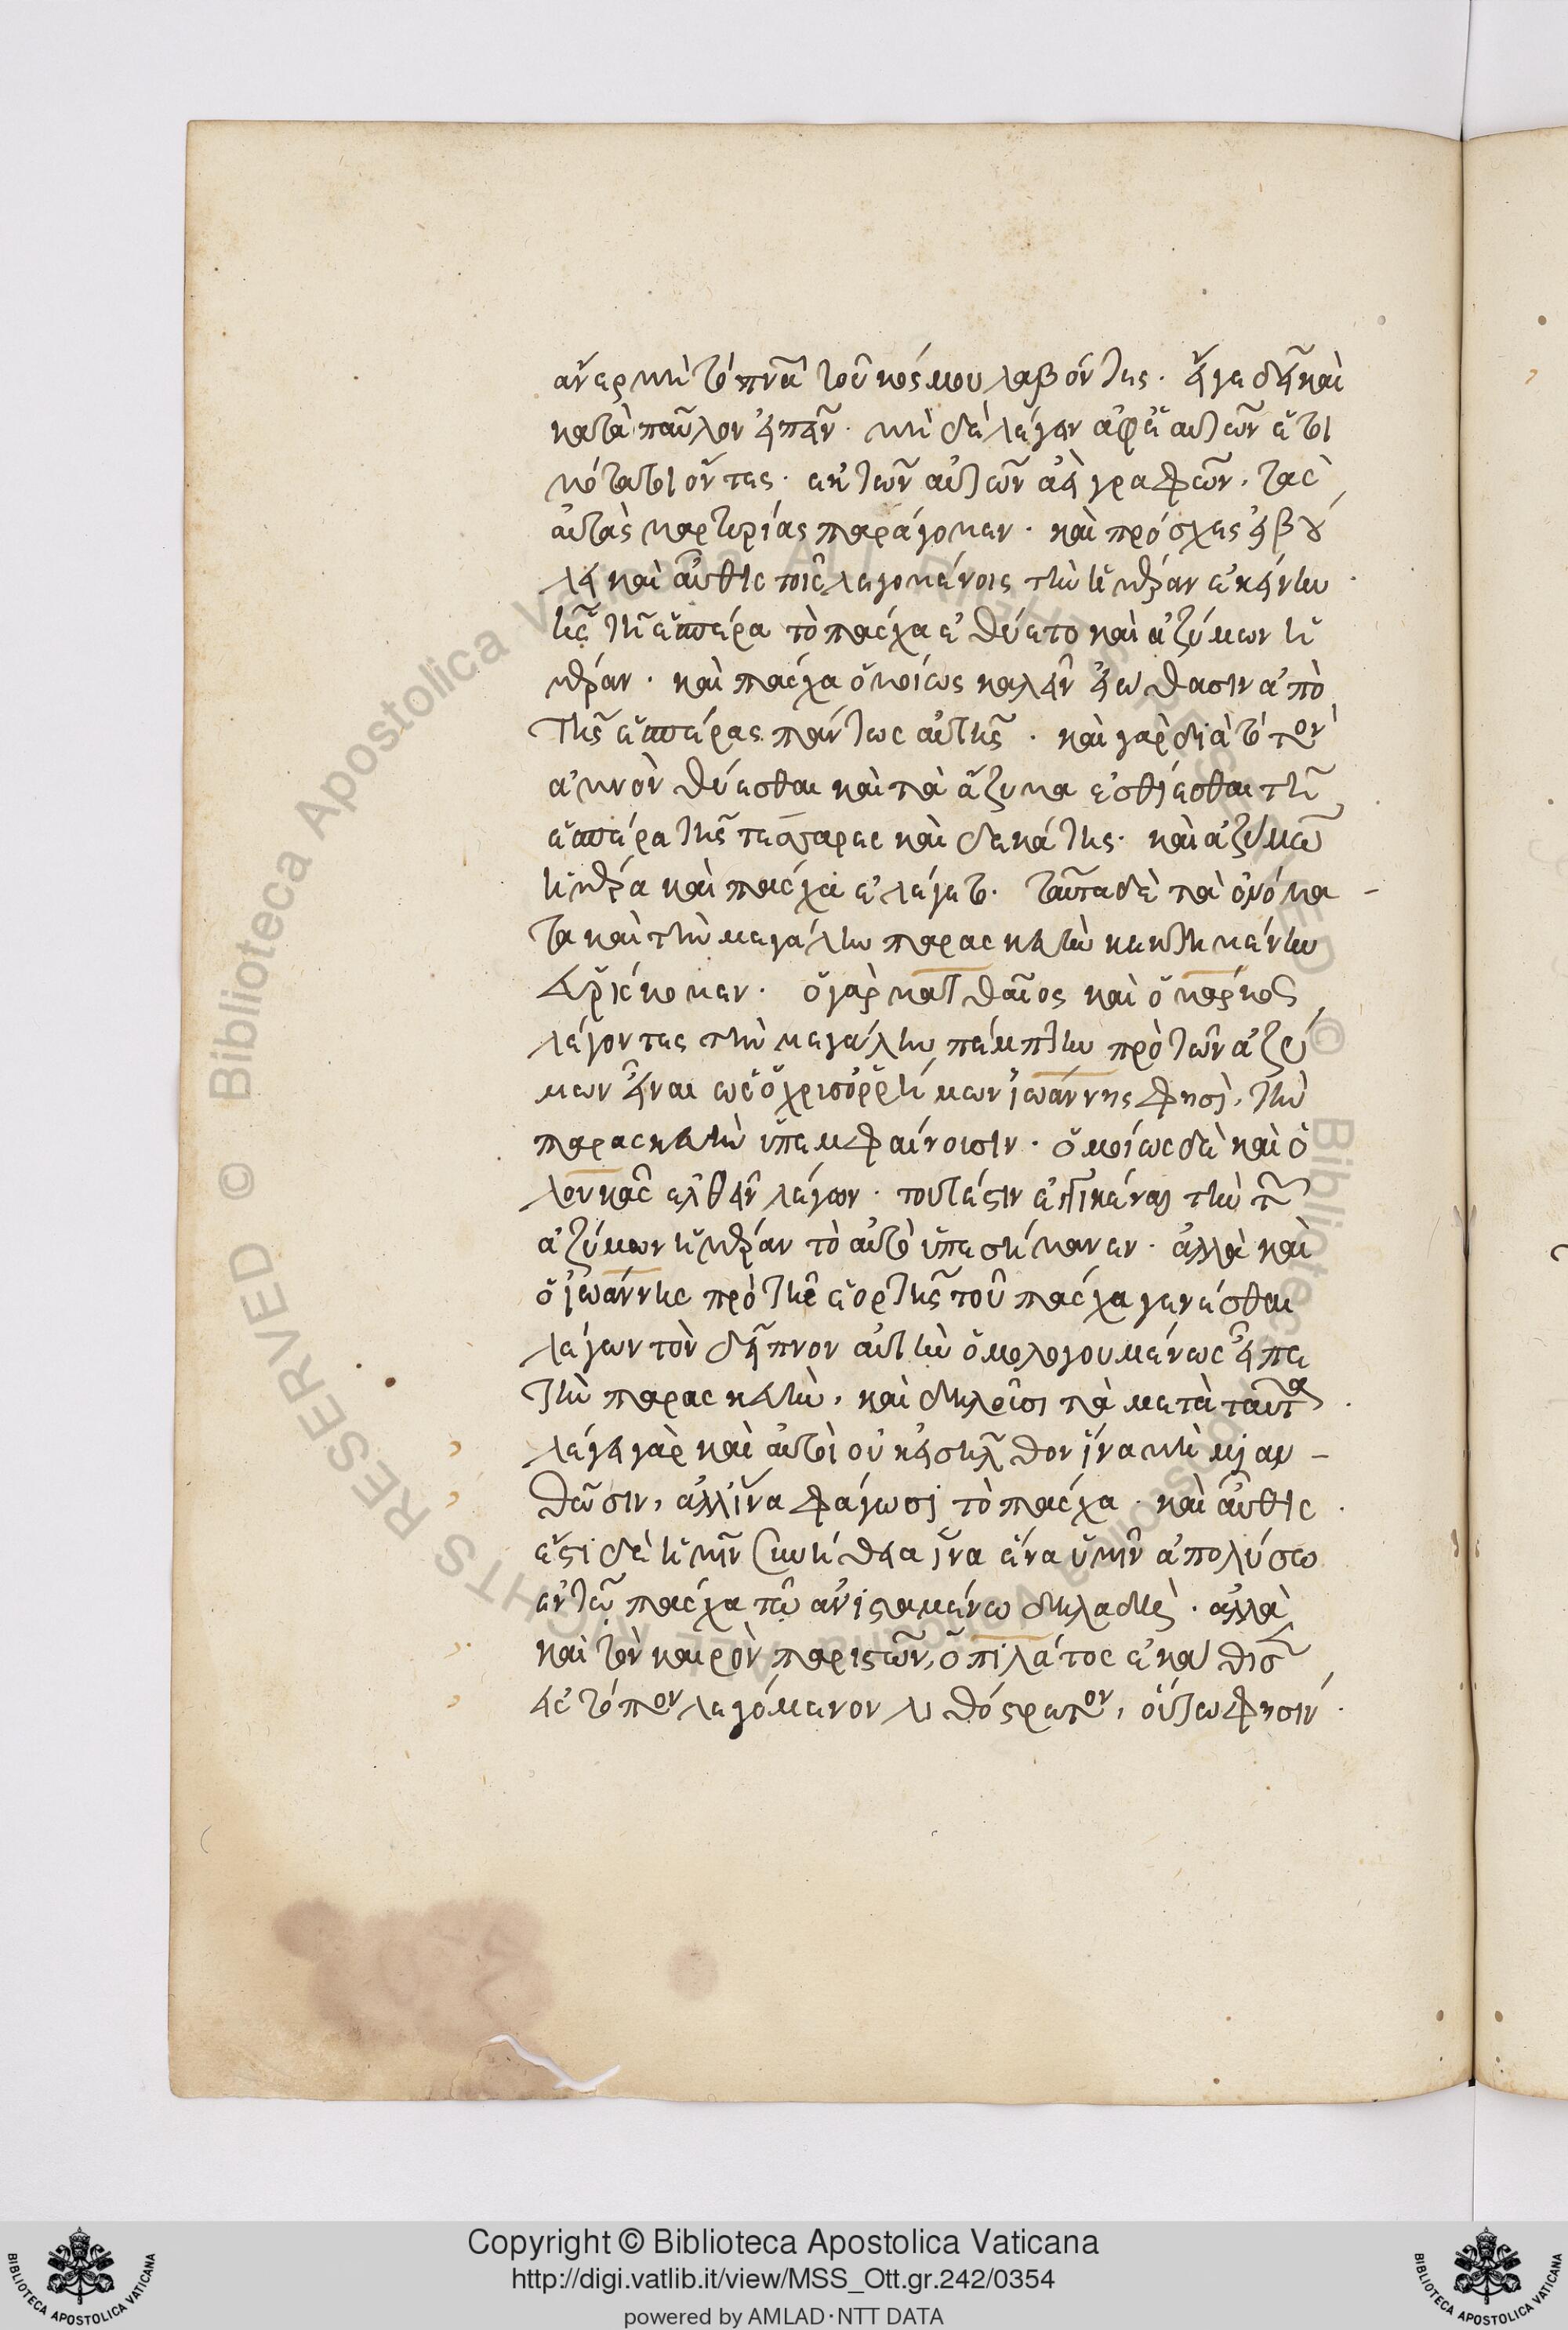 ἄνερ μὴ τὸ πνα τοῦ κόσμου λαβόντες. εἴγε δεῖ καὶ
κατὰ παῦλον εἰπεῖν. μὴ δὲ λέγειν ἀφ' ἑαυτῶν ἔτι
τας. ἐκ τῶν αὐτῶν γραφῶν. τὰς
αὐτὰς μαρτυρίας παράγομεν. καὶ πρόσχες εἰ βού
λει καὶ αὖθις τοῖς λεγομένοις τὴν ἡμέραν ἐκείνην
ἧς τῇ ἑσπέρα τὸ πάσχα ἐθύετο καὶ ἀζύμων ἡ
μέραν. καὶ πάσχα ὁμοίως καλεῖν εἰώθασιν ἀπὸ
τῆς ἑσπέρας πάντως αὐτῆς. καὶ γὰρ διὰ τὸ τὸν
ἀμνὸν θύεσθαι καὶ τὰ ἄζυμα ἐσθίεσθαι τῇ
ἑσπέρα τῆς τεσσαρες καὶ δεκάτης. καὶ ἀζύμων
ἡμέρα καὶ πάσχα ἐλέγετο. ταῦτα δὲ τὰ ὀνόμα-
τα καὶ τὴν μεγάλην παρασκευὴν κεκτημένην
εὑρίσκομεν. ὁ γὰρ ματθαῖος καὶ ὁ μάρκος
λέγοντες τὴν μεγάλην πέμπτην πρὸ τῶν ἀζύ
μων εἶναι ὡς ὁ χρυσορρήμων ἰωάννης φησὶ, τὴν
παρασκευὴν ὑπεμφαίνουσιν. ὁμοίως δὲ καὶ ὁ
λουκᾶς ἐλθεῖν λέγων. τουτέστιν ἐπικεῖναι τὴν τῶν
ἀζύμων ἡμέραν τὸ αὐτὸ ὑπεσήμανεν. ἀλλὰ καὶ
ὁ ἰωάννης πρὸ τῆς ἑορτῆς τοῦ πάσχα γενέσθαι
λέγων τὸν δεῖπνον αὐτὴν ὁμολογουμένως εἶπε
τὴν παρασκευὴν, καὶ δηλοῦσι τὰ μετὰ ταῦτα.
λέγει γὰρ καὶ αὐτοὶ οὐκ εἰσῆλθον ἵνα μὴ μιαν-
θῶσιν, ἀλλ' ἵνα φάγωσι τὸ πάσχα. καὶ αὖθις.
ἔστι δὲ ἡμῖν συνήθεια ἵνα ἕνα ὑμῖν ἀπολύσω
ἐν τῶ πάσχα τῶ ἀνισταμένω δηλαδὴ. ἀλλὰ
καὶ τὸν καιρὸν παριστῶν, ὁ πιλάτος ἐκάθισεν
εἰς τόπον λεγόμενον λιθόστρωτον, οὕτω φησιν.
Copyright © Biblioteca Apostolica Vaticana
http://digi.vatlib.it/view/MSS_Ott.gr.242/0354
powered by AMLAD·NTT DATA